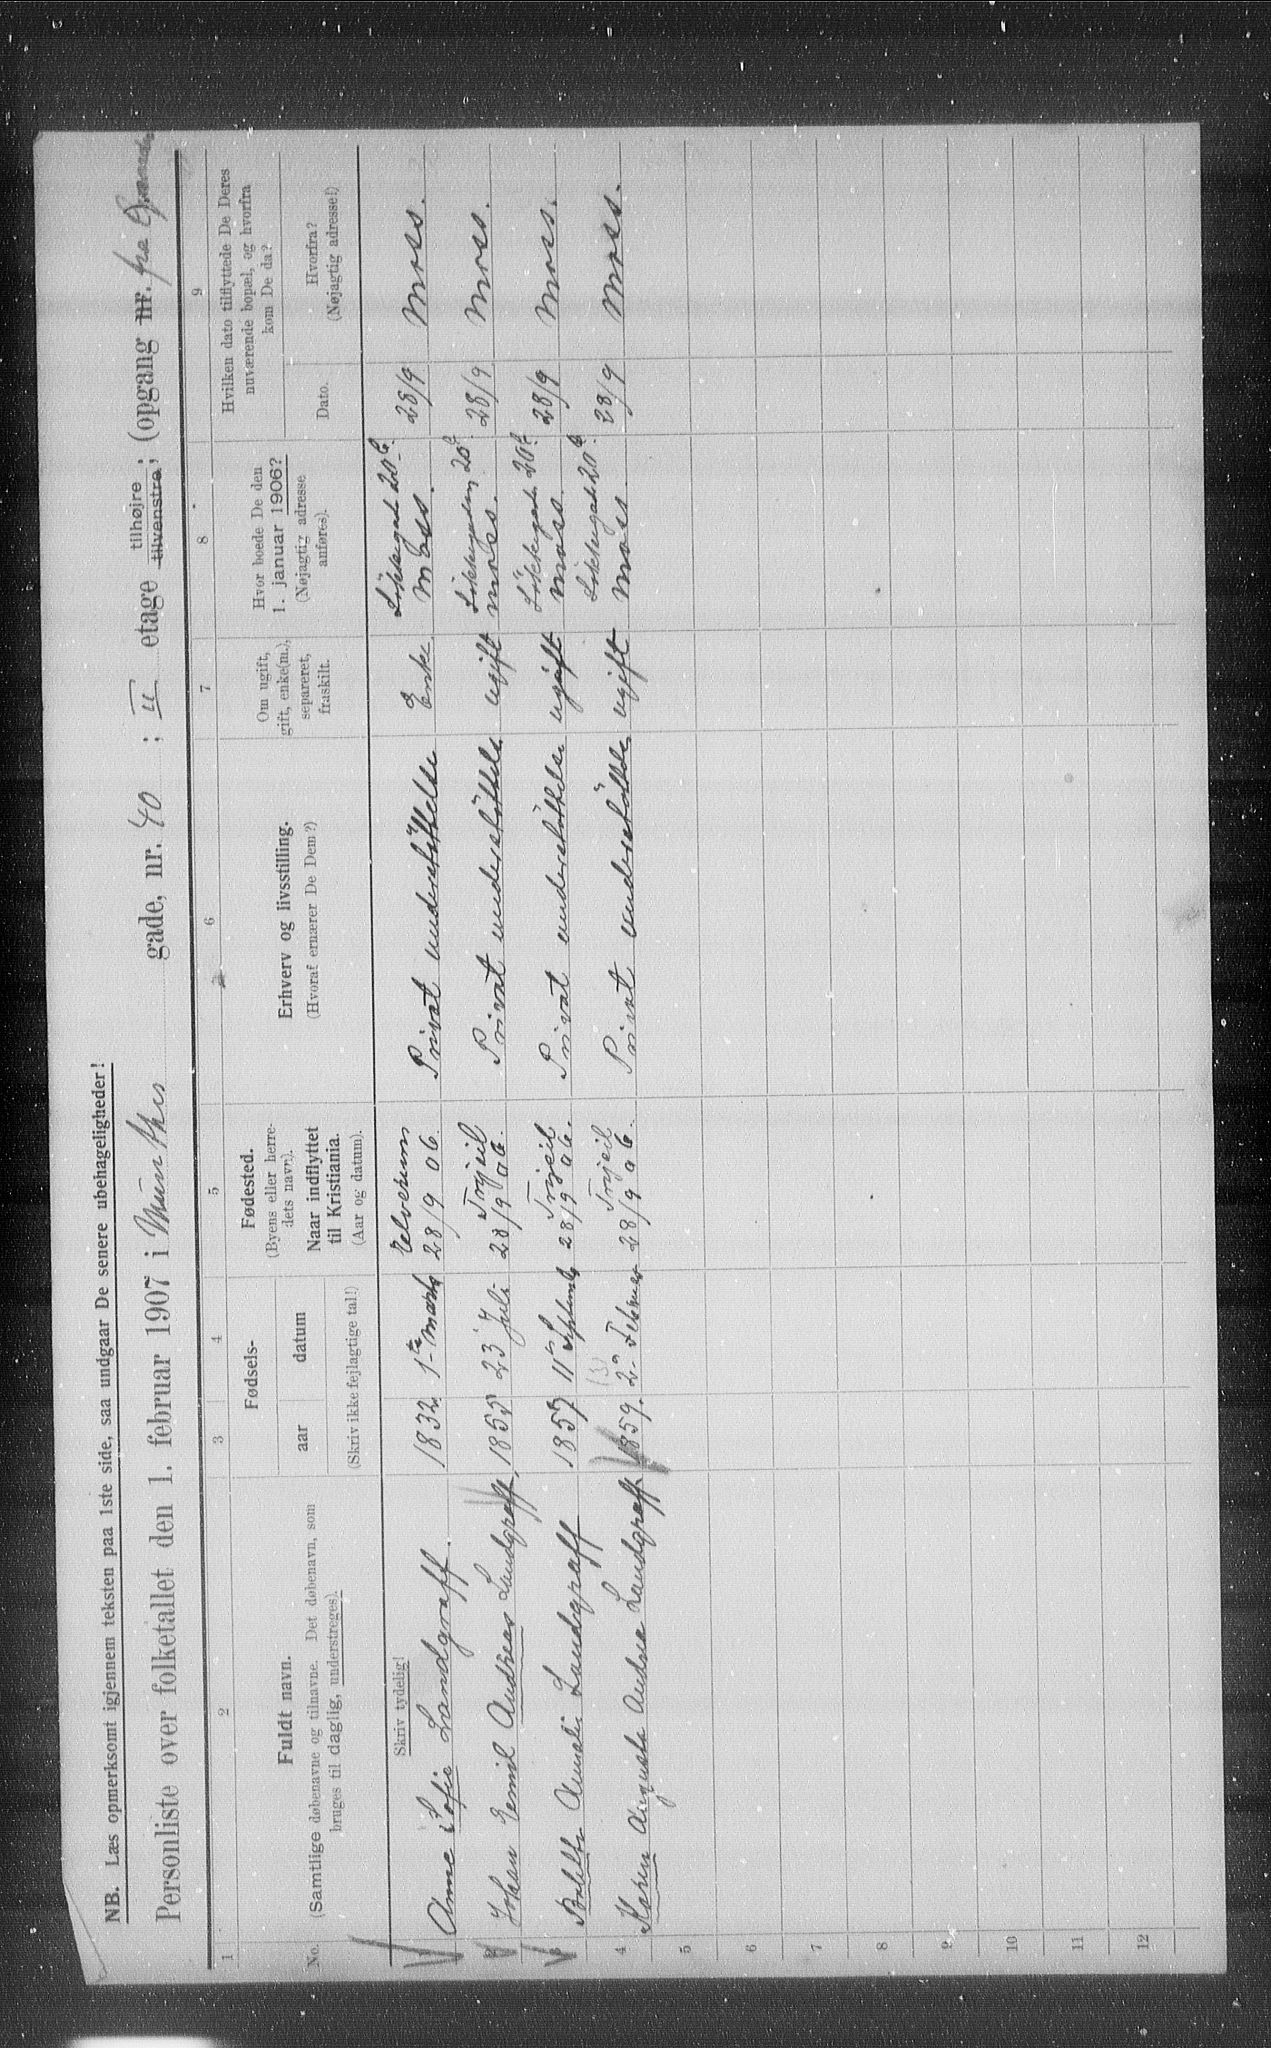 NB. Læs opmerksomt igjennem teksten paa 1ste side, saa undgaar De senere ubehageligheder!
Personliste over folketallet den 1. februar 1907 i Munthes gade, nr. 40 ; II etage tilhøjre tilvenstre; (opgang nr. fra
1 2 3 4 5 6 7 8 9
No.
Fuldt navn.
(Samtlige døbenavne og tilnavne. Det døbenavn, som
bruges til daglig, understreges).
Fødsels-
aar datum
(Skriv ikke fejlagtige tal!)
Fødested.
(Byens eller herre-
dets navn).
Naar indflyttet
til Kristiania.
(Aar og datum).
Erhverv og livsstilling.
(Hvoraf ernærer De Dem?)
Om ugift,
gift, enke(m.),
separeret,
fraskilt.
Hvor boede De den
1. januar 1906?
(Nøjagtig adresse
anføres).
Hvilken dato tilflyttede De Deres
nuværende bopæl, og hvorfra
kom De da?
Dato.
Hvorfra?
(Nøjagtig adresse!)
Skriv tydelig!
1 Anne Sofie Landgraff. 1832 1ste marts Elverum 28/9 06. Privat understöttelse Enke Moss. 28/9 Moss.
2 Johan Emil Andreas Landgraff, 1855 23 Juli 28/9 06. Privat understöttelse ugift Moss. 28/9 Moss.
3 Amalie Landgraff 1857 11te September 28/9 06. Privat understöttelse ugift Moss. 28/9 Moss.
4 Karen Augusta Andrea Landgraff 1859. 2 Februar 28/9 06. Privat understöttelse ugift Moss. 28/9 Moss.
5
6
7
8
9
10
11
12